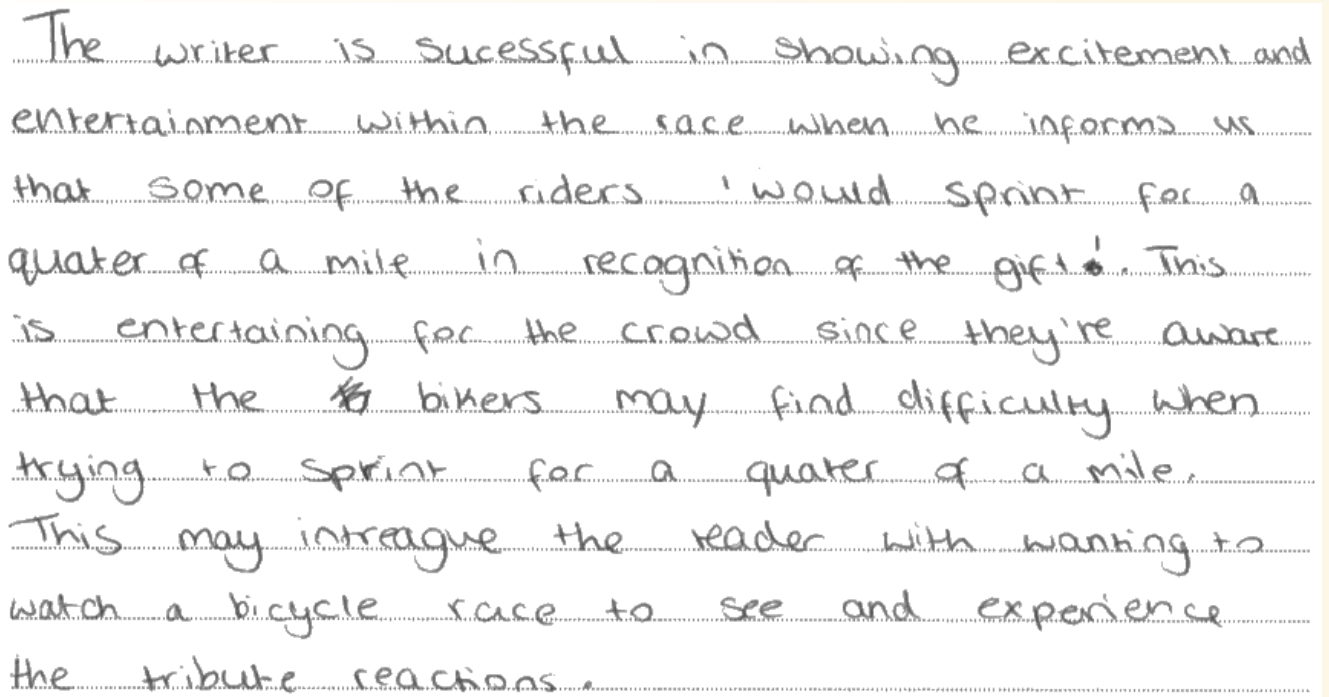 The writer is sucessful in showing excitement and
entertainment within the race when he informs us
that some of the riders 'would sprint for a
quater of a mile in recognition of the gift'. This
is entertaining for the crowd since they're aware
that the bikers may find difficulty when
trying to sprint for a quater of a mile.
This may intreague the reader with wanting to
watch a bicycle race to see and experience
the tribute reactions.